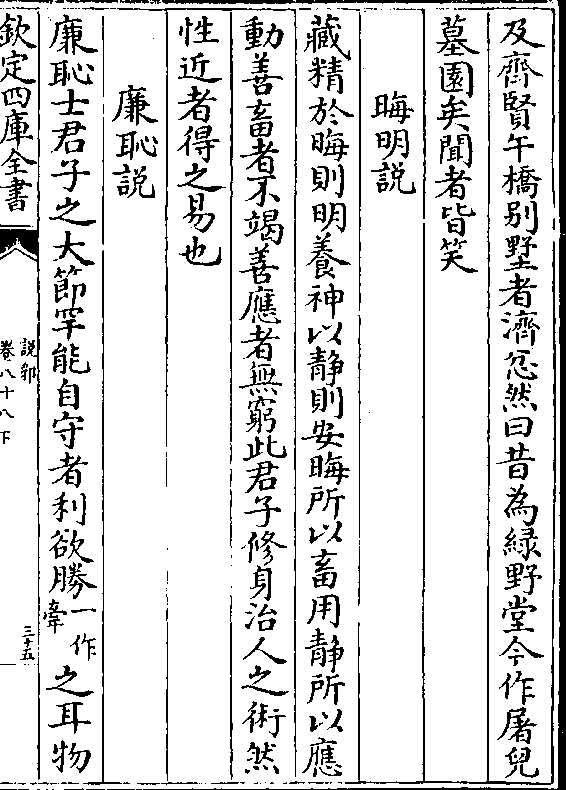 及齊賢午橋别墅者濟忿然曰昔為緑野堂今作屠兒
墓園矣聞者皆笑
晦明説
藏精於晦則明養神以静則安晦所以畜用静所以應
動善畜者不竭善應者無窮此君子修身治人之術然
性近者得之易也
廉恥説
廉恥士君子之大節罕能自守者利欲勝一作牽之耳物
欽定四庫全書
説郛
卷八十八下
三十五